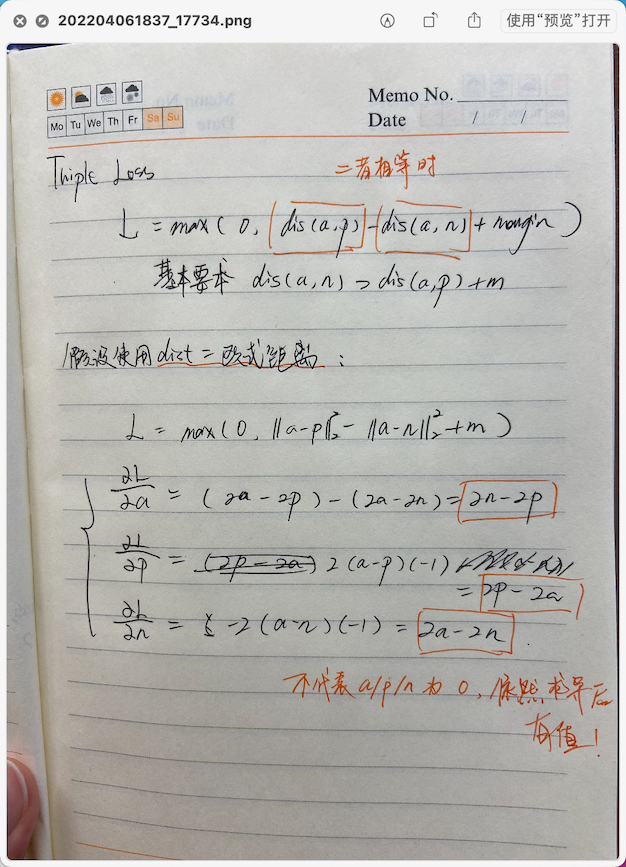 202204061837_17734.png
使用“预览”打开
Memo No.
Date / /
Mo Tu We Th Fr Sa Su
Triple Loss
二者相等时
L = max( 0, dis(a,p) - dis(a,n) + margin )
基本要求 dis(a,n) > dis(a,p) + m
假设使用 dict = 欧式距离 :
L = max( 0, ||a-p||₂² - ||a-n||₂² + m )
∂L/∂a = (2a - 2p) - (2a - 2n) = 2n - 2p
∂L/∂p = (2p - 2a) 2(a-p)(-1)
= 2p - 2a
∂L/∂n = -2(a-n)(-1) = 2a - 2n
不代表 a/p/n 为 0, 依然求导后
有值!